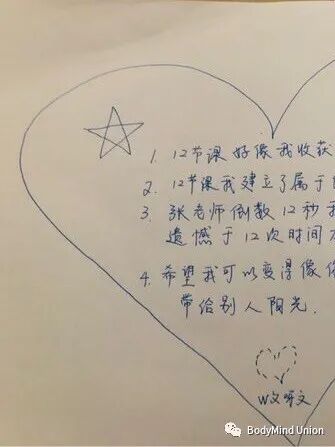 1. 12节课好像我收获
2. 12节课我建立了属于
3. 张老师倒数12秒
遗憾于12次时间
4. 希望我可以变得像
带给别人阳光.
BodyMind Union